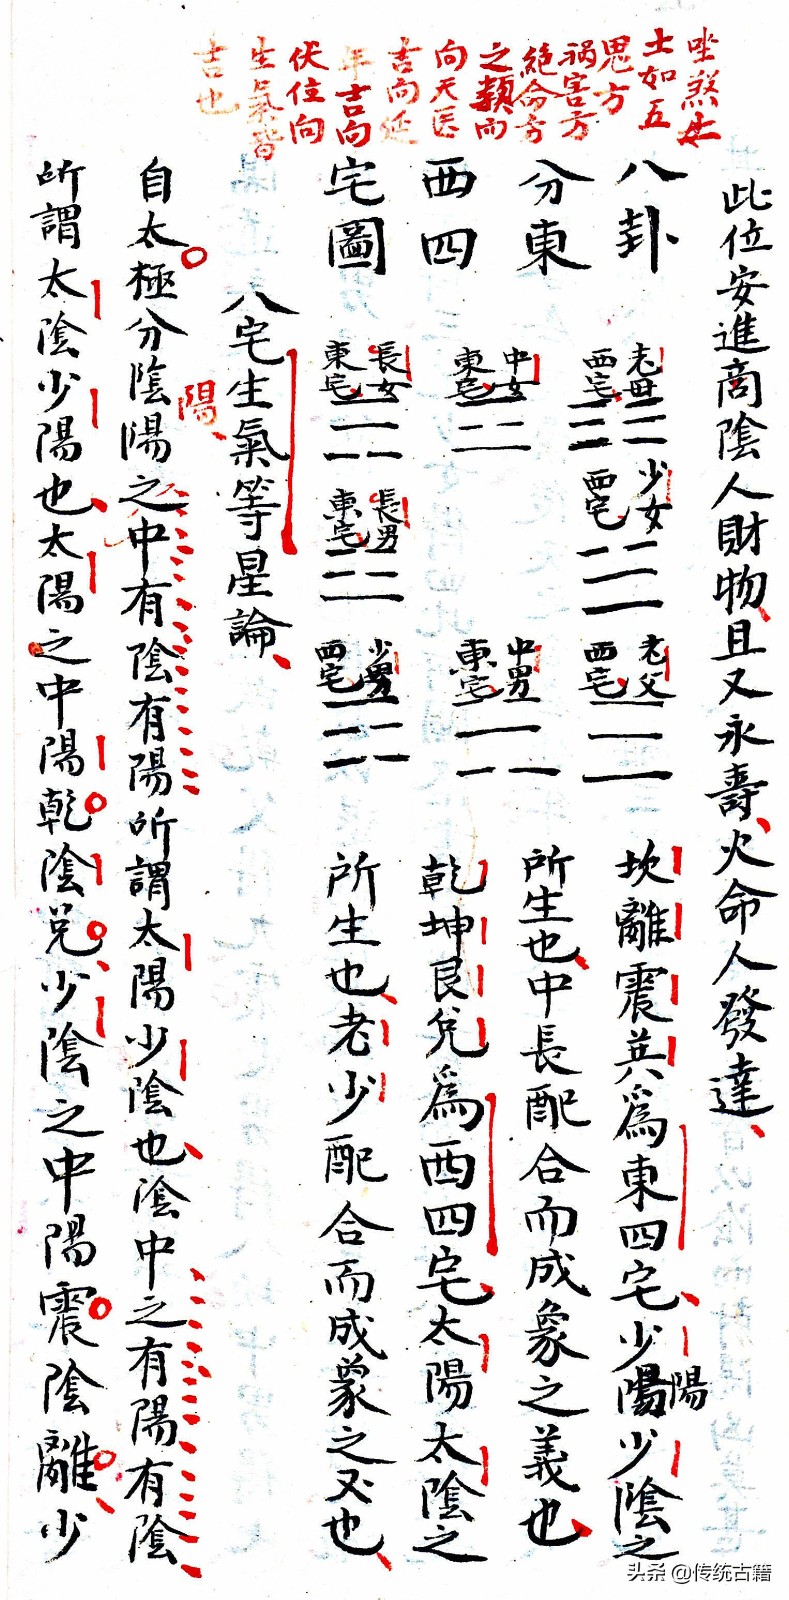 坐煞
士如五
鬼方
祸害方
絕命方
之類而
向天医
吉向延
年吉向
伏位向
生氣皆
吉也
此位安進商陰人財物且又永壽火命人發達
八卦
分東
西四
宅圖
老母
西宅
少女
西宅
老父
西宅
中女
東宅
中男
東宅
長女
東宅
長男
東宅
少男
西宅
坎離震巽爲東四宅少陽少陰之
陽
所生也中長配合而成象之義也
乾坤艮兌爲西四宅太陽太陰之
所生也老少配合而成象之又也
八宅生氣等星論
自太極分陰陽之中有陰有陽所謂太陽少陰也陰中之有陽有陰
陽
所謂太陰少陽也太陽之中陽乾陰兌少陰之中陽震陰離少
头条 @传统古籍